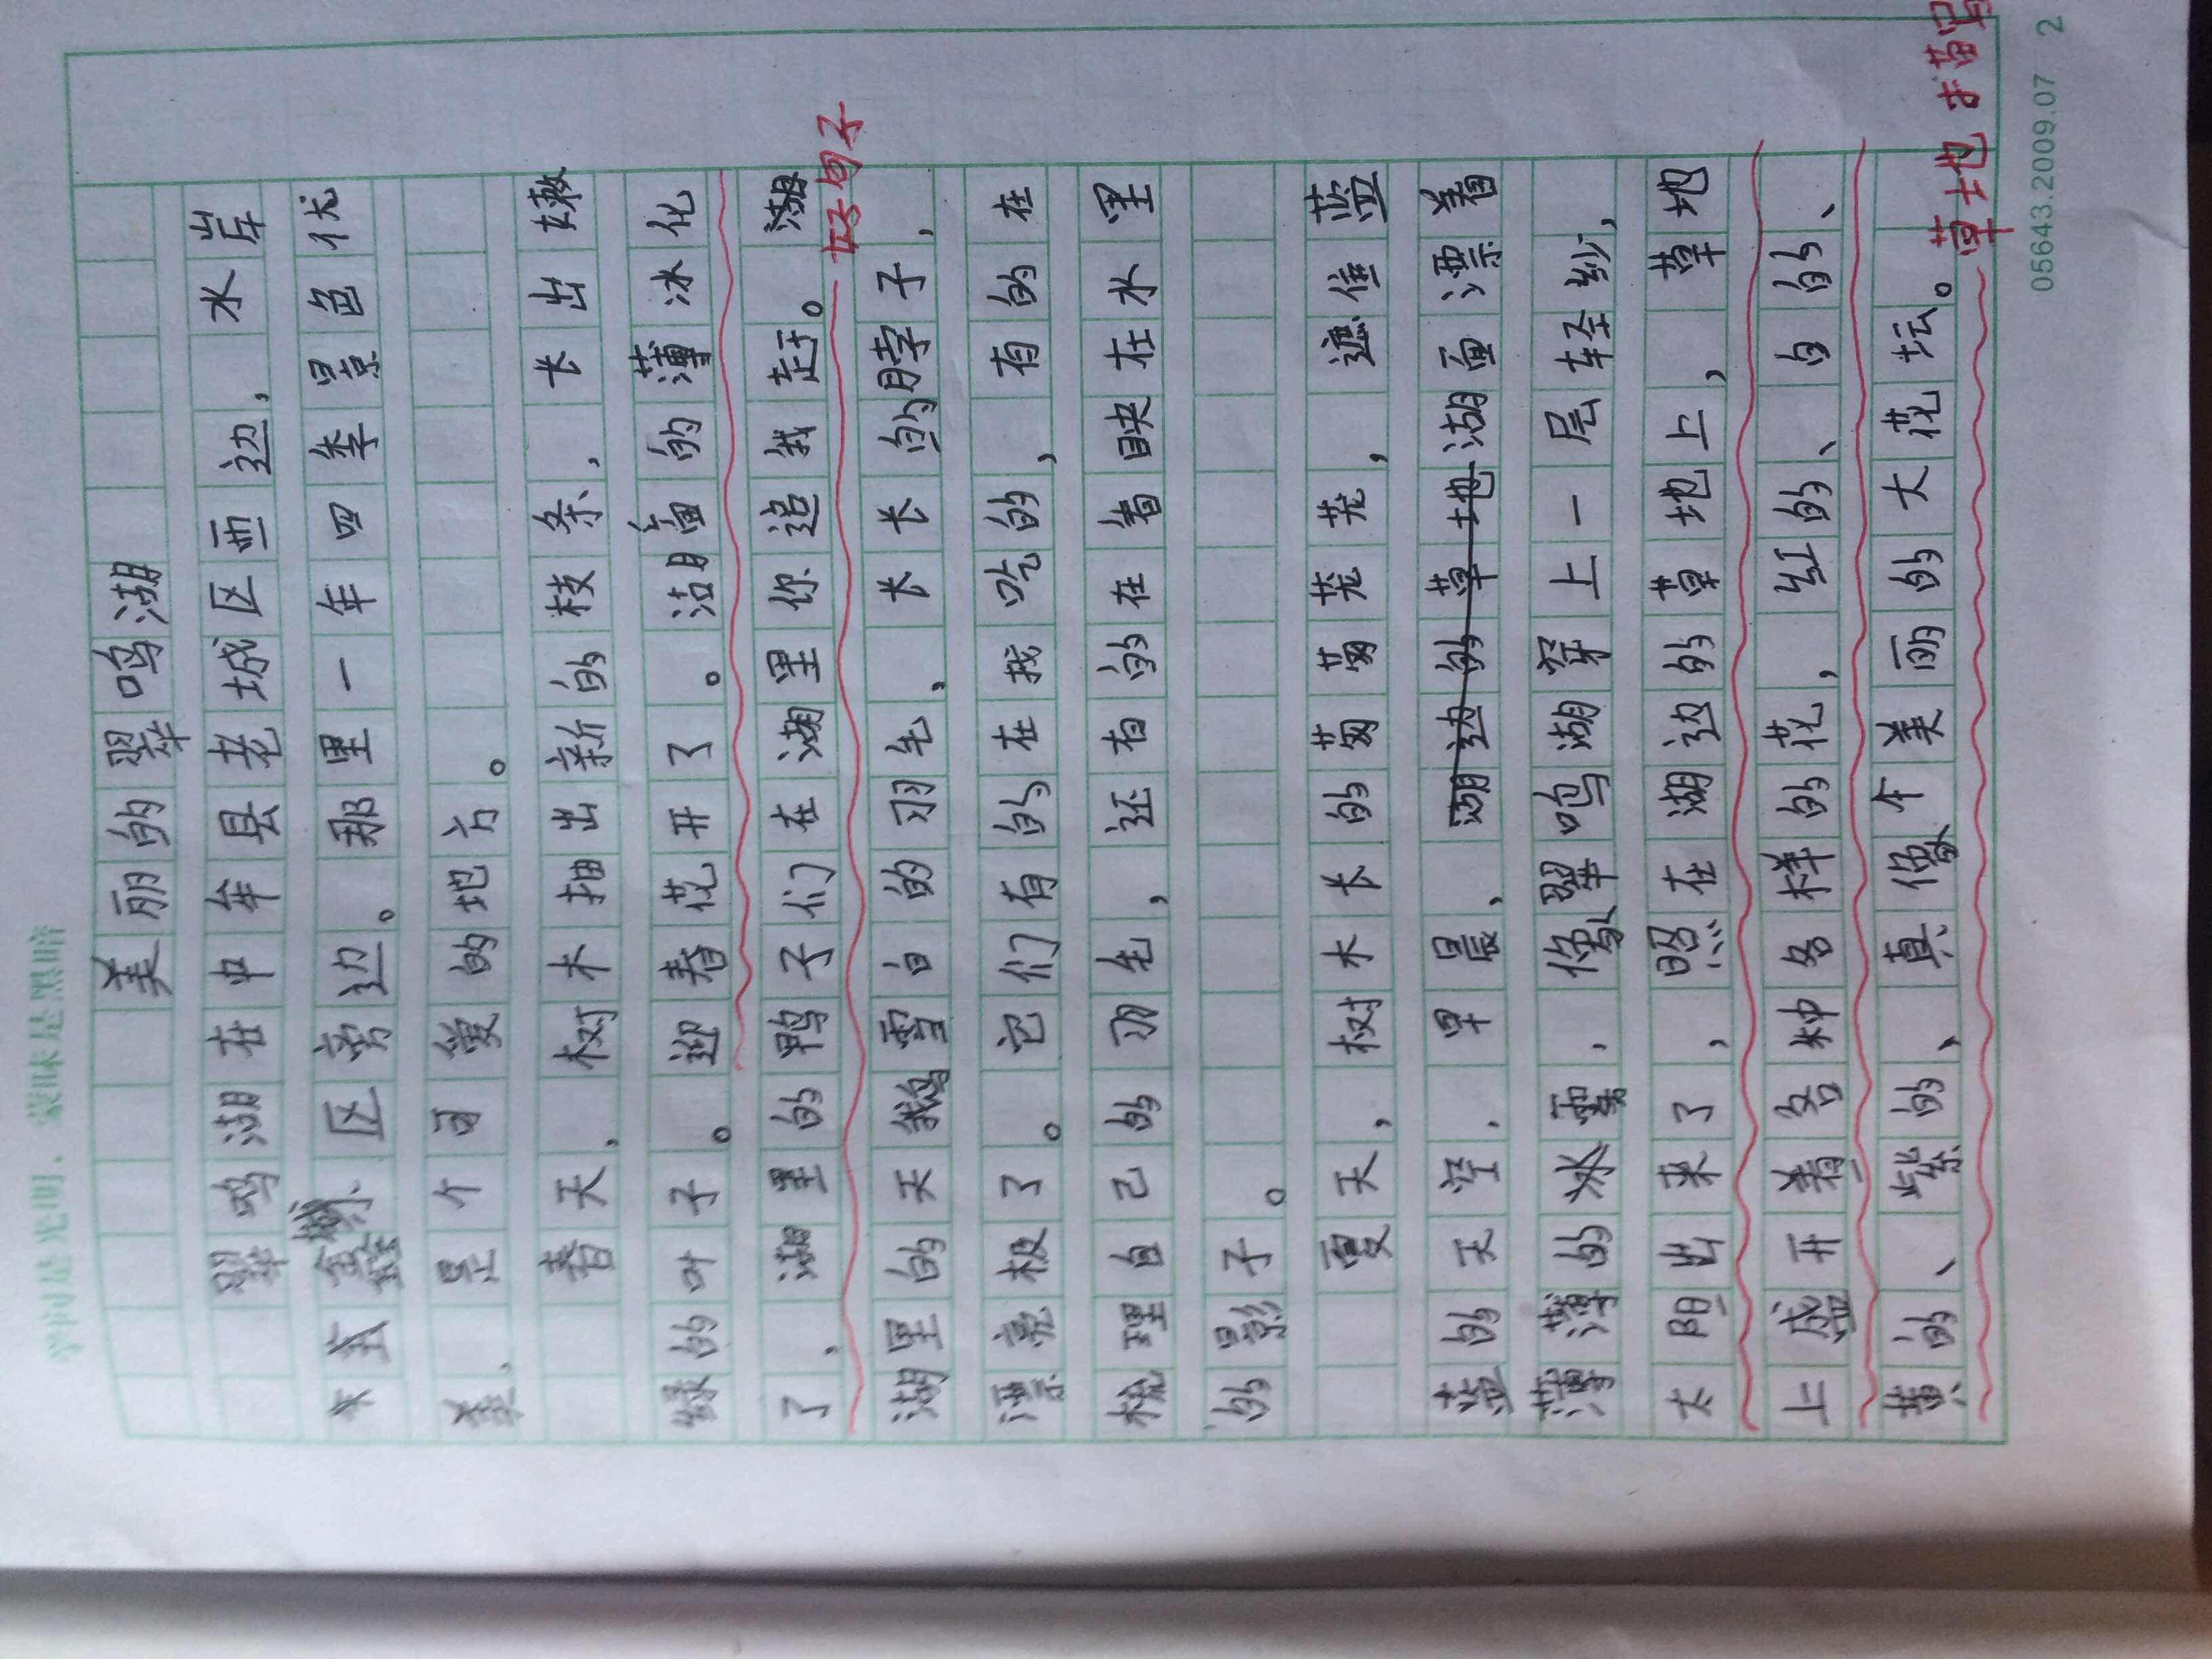 学问是光明,蒙昧是黑暗
美丽的翠鸣湖
翠鸣湖在中牟县老城区西边,水库
区旁边。那里一年四季景色优
美,是个可爱的地方。
春天,树木抽出新的枝条,长出嫩
绿的叶子。迎春花开了。湖面的薄冰化
了,湖里的鸭子们在湖里你追我赶。湖
好句子
湖里的天鹅雪白的羽毛,长长的脖子,
漂亮极了。它们有的在找吃的,有的在
梳理自己的羽毛,还有的在看映在水里
的影子。
夏天,树木长的葱葱茏茏,遮住蓝
蓝的天空,早晨,湖边的草地湖面漂着
薄薄的水雾,像翠鸣湖穿上一层轻纱,
太阳出来了,照在湖边的草地上,草地
上盛开着各种各样的花,红的、白的、
黄的、紫的、真像个美丽的大花坛。
草地
05643.2009.07 2